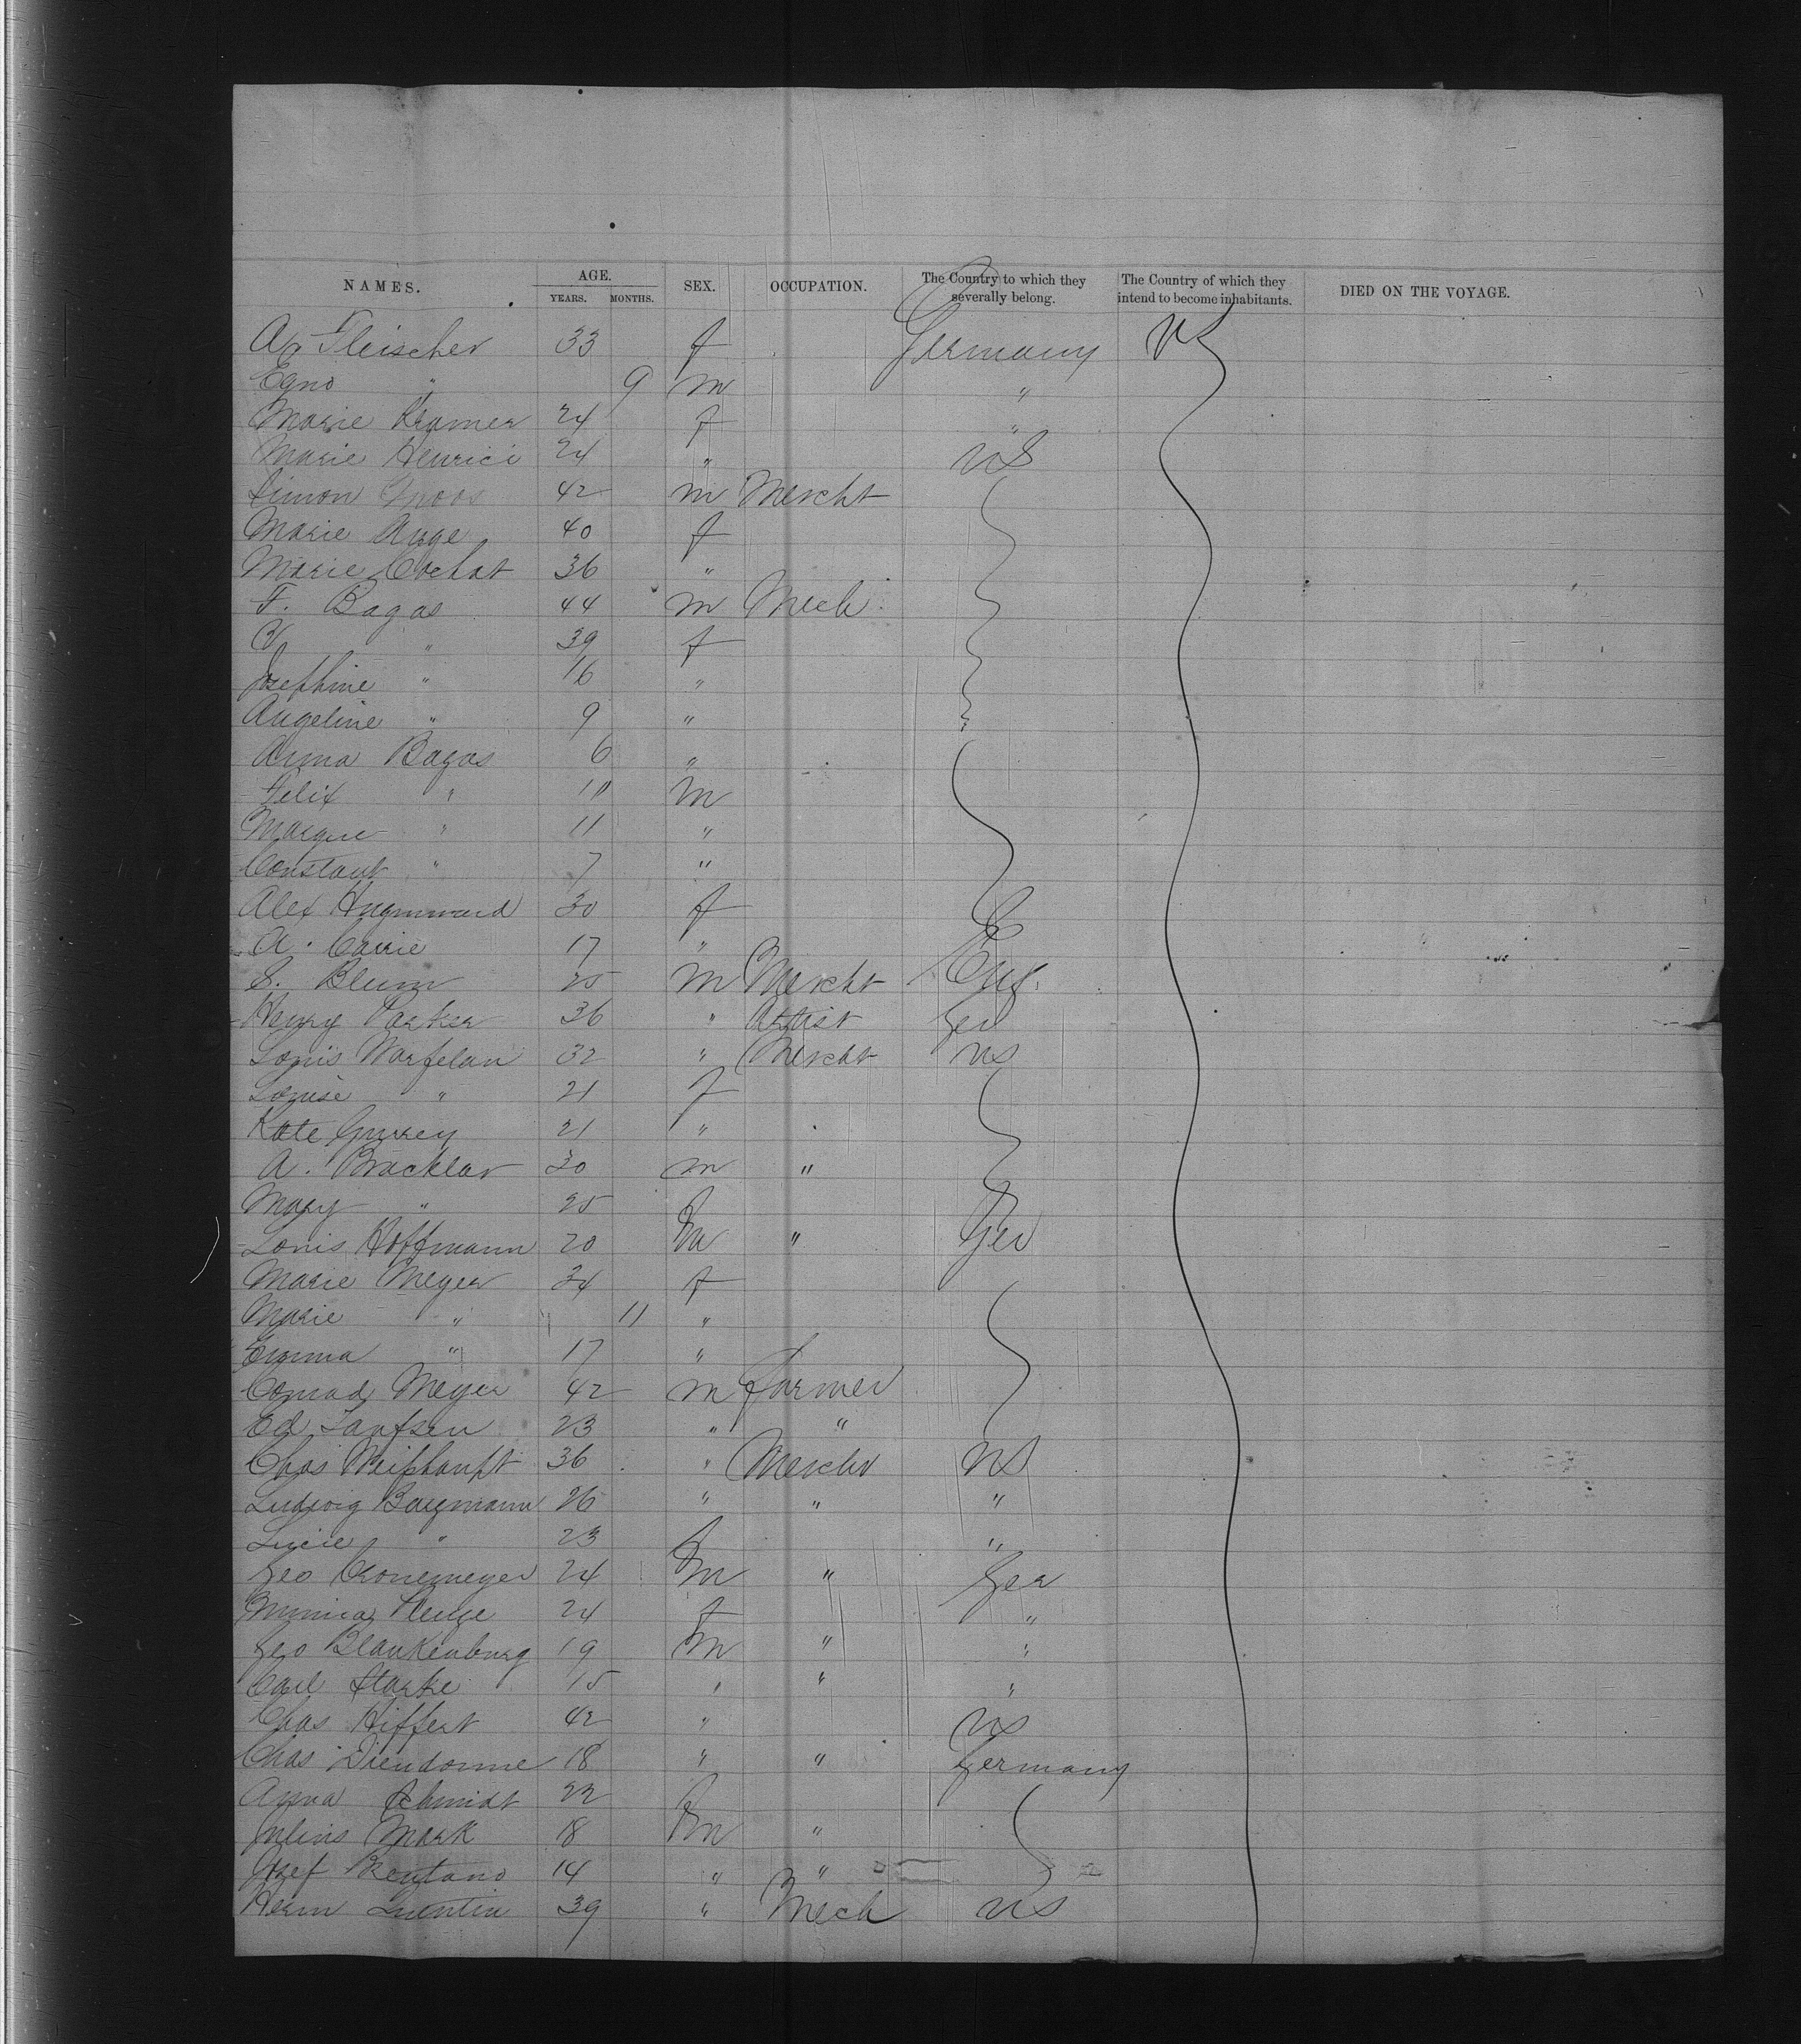 NAMES. AGE. YEARS. MONTHS. SEX. OCCUPATION. The Country to which they severally belong. The Country of which they intend to become inhabitants. DIED ON THE VOYAGE.
A. Fleischer 33 f Germany US
Egno " 9 m "
Marie Kramer 24 f "
Marie Henrici 24 " US
Simon Moos 42 m Mercht
Marie Auge 40 f
Marie Cochat 36 "
F. Bagas 44 m Mech
" 39 f
Josephine " 16 "
Angeline " 9 "
Anna Bagas 6 "
Felix " 11 m
" 11 "
Constant " 7 "
Alex 30 f
A. Carrie 17 "
S. Blum 25 m Mercht Eng.
Henry Parker 36 " Artist Ger
Louis Warfelan 32 " Mercht US
Louise " 21 f
Kate Gurrey 21 "
A. Bracklar 30 m "
Mary " 25 f
Louis Hoffmann 20 m " Ger
Marie Meyer 34 f
Marie " 11 "
Emma " 17 "
Conrad Meyer 42 m farmer
Ed 23 " "
Chas Weishaupt 36 " Mercht US
Ludwig Baymann 26 " " "
Lucie " 23 f "
Geo Cronemeyer 24 m " Ger
Minnie 24 f "
Geo Blankenburg 19 m " "
Carl Starke 15 " " "
Chas Hiffert 42 " US
Chas Dieudonne 18 " " Germany
Anna Schmidt 22 f
Julius Mark 18 m "
Josef Brentano 14 " "
Herm Quentin 39 " Mech US